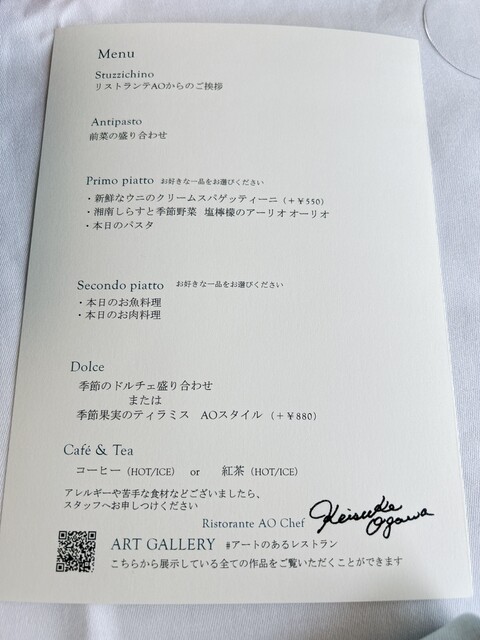 Menu
Stuzzichino
リストランテAOからのご挨拶
Antipasto
前菜の盛り合わせ
Primo piatto お好きな一品をお選びください
・新鮮なウニのクリームスパゲッティーニ（＋￥550）
・湘南しらすと季節野菜 塩檸檬のアーリオオーリオ
・本日のパスタ
Secondo piatto お好きな一品をお選びください
・本日のお魚料理
・本日のお肉料理
Dolce
季節のドルチェ盛り合わせ
または
季節果実のティラミス AOスタイル（＋￥880）
Café & Tea
コーヒー（HOT/ICE） or 紅茶（HOT/ICE）
アレルギーや苦手な食材などございましたら、
スタッフへお申しつけください
Ristorante AO Chef Keisuke Ogawa
ART GALLERY #アートのあるレストラン
こちらから展示している全ての作品をご覧いただくことができます